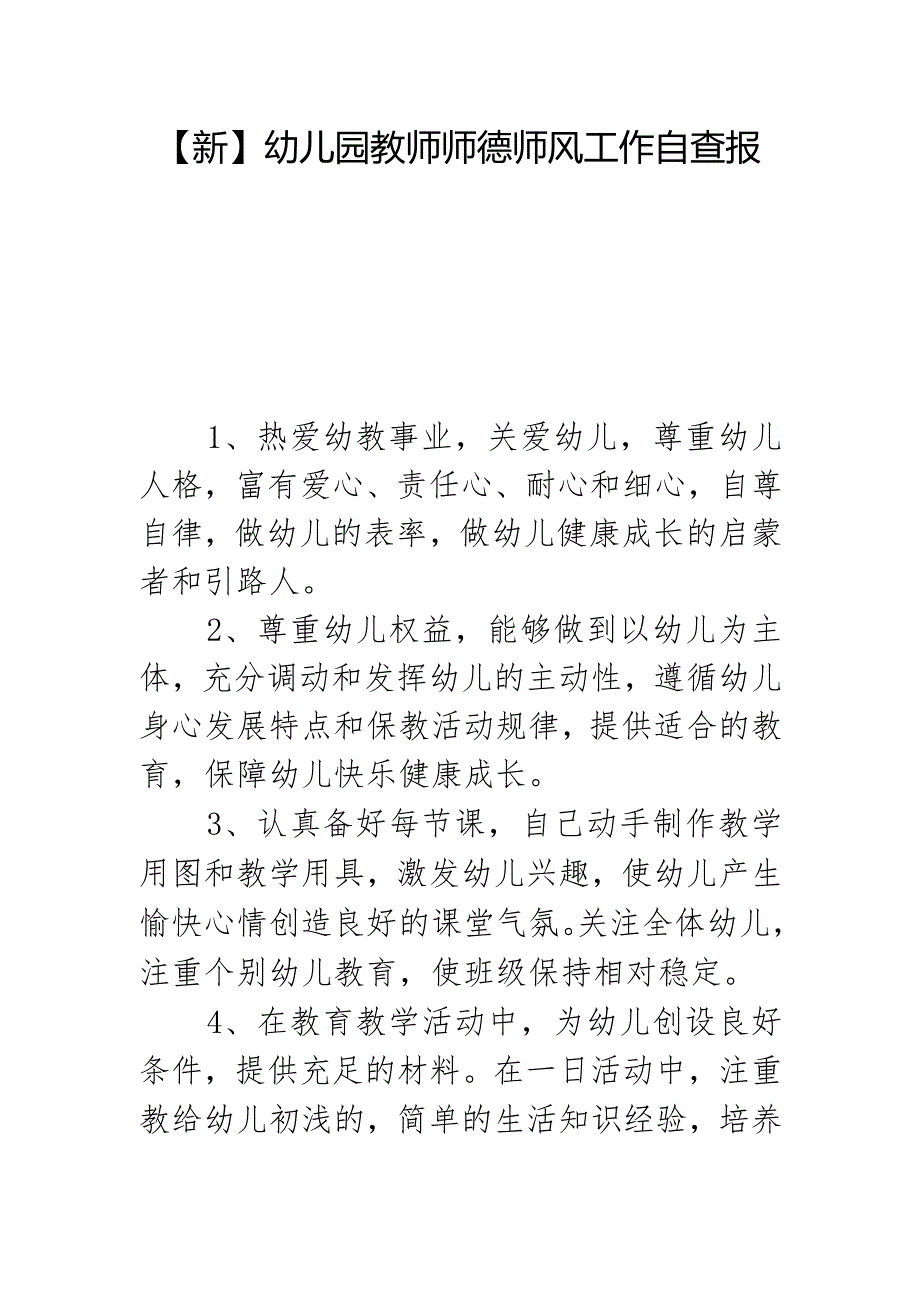 【新】幼儿园教师师德师风工作自查报
1、热爱幼教事业，关爱幼儿，尊重幼儿
人格，富有爱心、责任心、耐心和细心，自尊
自律，做幼儿的表率，做幼儿健康成长的启蒙
者和引路人。
2、尊重幼儿权益，能够做到以幼儿为主
体，充分调动和发挥幼儿的主动性，遵循幼儿
身心发展特点和保教活动规律，提供适合的教
育，保障幼儿快乐健康成长。
3、认真备好每节课，自己动手制作教学
用图和教学用具，激发幼儿兴趣，使幼儿产生
愉快心情创造良好的课堂气氛。关注全体幼儿，
注重个别幼儿教育，使班级保持相对稳定。
4、在教育教学活动中，为幼儿创设良好
条件，提供充足的材料。在一日活动中，注重
教给幼儿初浅的，简单的生活知识经验，培养